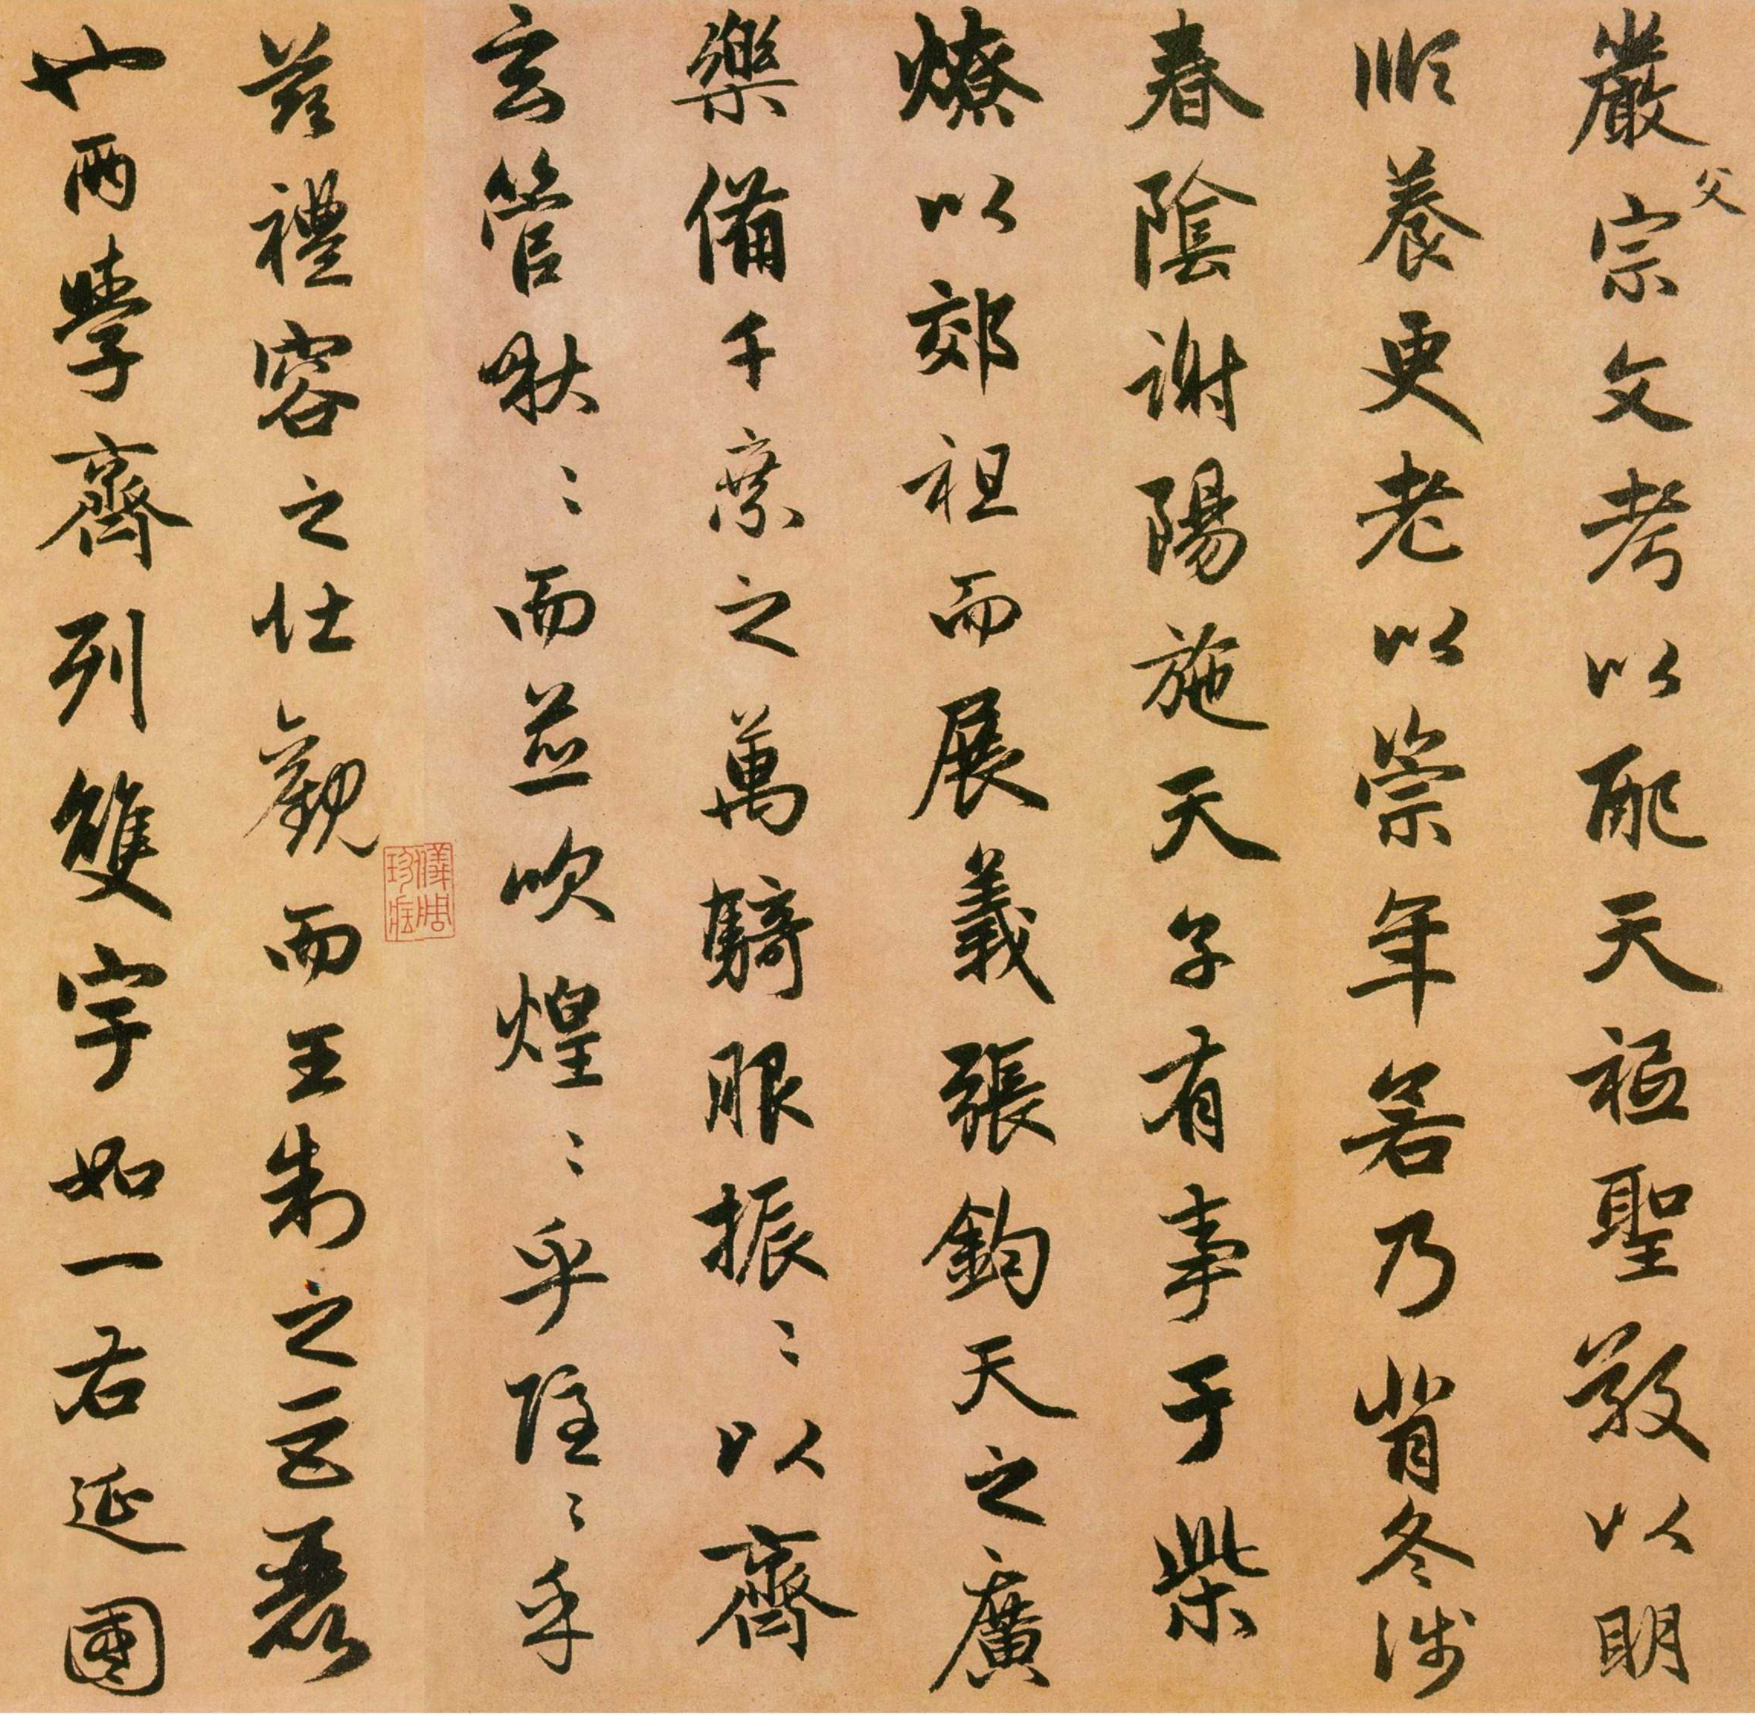 嚴父宗文考以配天祗聖敬以明
順養更老以崇年若乃背冬涉
春陰謝陽施天子有事于柴
燎以郊祖而展義張鈞天之廣
樂備千乘之萬騎服振〻以齊
玄管啾〻而並吹煌〻乎隱〻乎
茲禮容之壯觀而王制之巨麗
也兩學齊列雙宇如一右延國
儀周珍藏